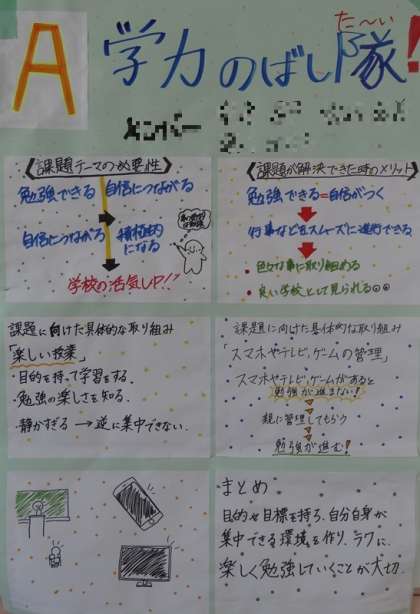 A
学力のばし隊!
た～い
メンバー
《課題テーマの必要性》
勉強できる 自信につながる
自信につながる 積極的になる
学校の活気UP!!
《課題が解決できた時のメリット》
勉強できる=自信がつく
行事などをスムーズに進行できる
・色々な事に取り組める
・良い学校として見られる
課題に向けた具体的な取り組み
「楽しい授業」
・目的を持って学習をする。
・勉強の楽しさを知る。
・静かすぎる → 逆に集中できない。
課題に向けた具体的な取り組み
「スマホやテレビ、ゲームの管理」
スマホやテレビ、ゲームがあると
勉強が進まない!
親に管理してもらう
勉強が進む!
まとめ
目的や目標を持ち、自分自身が
集中できる環境を作り、ラクに、
楽しく勉強していくことが大切.